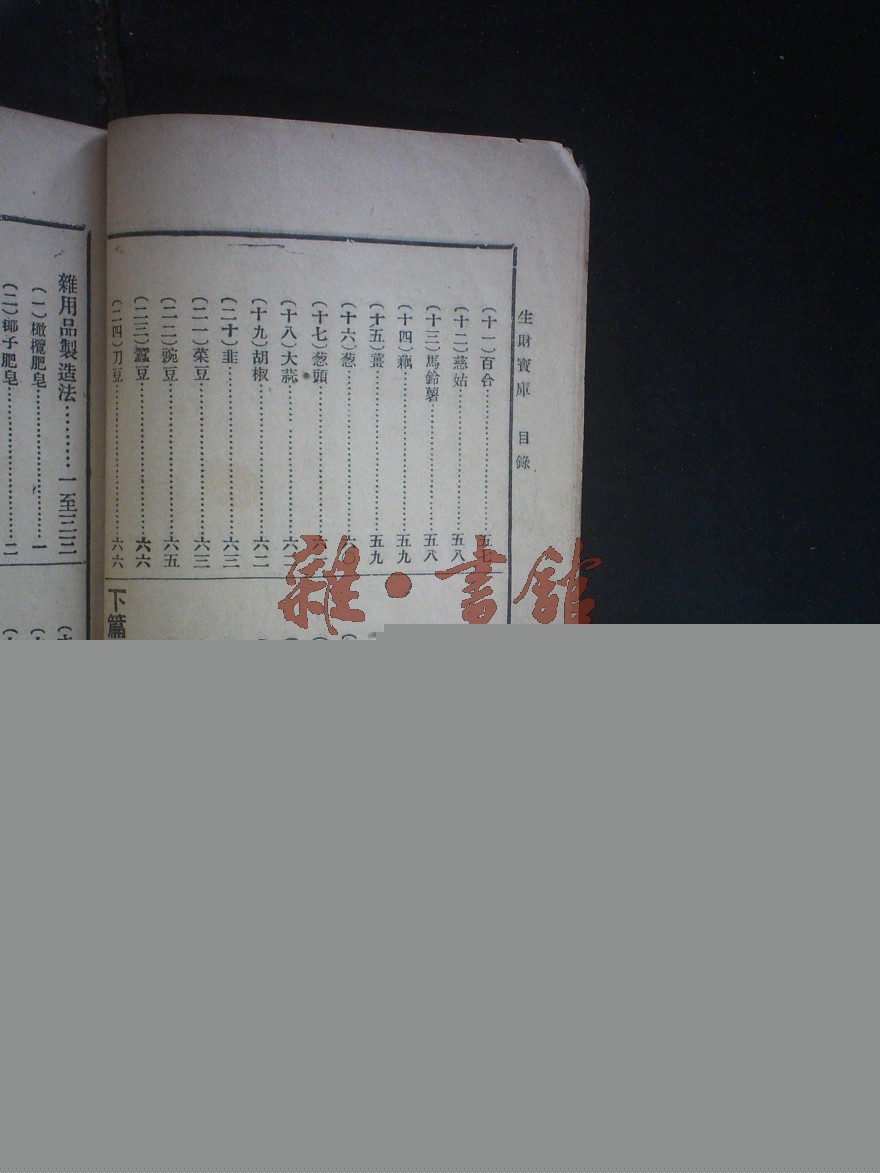 生財寶庫 目錄
(十一)百合……五七
(十二)慈姑……五八
(十三)馬鈴薯……五八
(十四)藕……五九
(十五)薑……五九
(十六)葱……六〇
(十七)葱頭……六一
(十八)大蒜……六二
(十九)胡椒……六二
(二十)韭……六三
(二一)菜豆……六三
(二二)豌豆……六五
(二三)蠶豆……六六
(二四)刀豆……六六
下篇
雜用品製造法……一至三三
(一)橄欖肥皂……一
(二)椰子肥皂……二
雜·書館